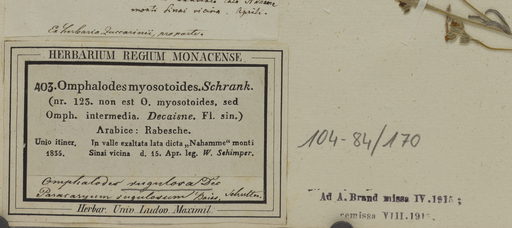 monti Sinai vicina. Aprili.
Ex herbario Zuccarinii, pro parte.
HERBARIUM REGIUM MONACENSE
403. Omphalodes myosotoides. Schrank.
(nr. 123. non est O. myosotoides, sed
Omph. intermedia. Decaisne. Fl. sin.)
Arabice: Rabesche.
Unio itiner. In valle exaltata lata dicta „Nahamme" monti
1835. Sinai vicina d. 15. Apr. leg. W. Schimper.
Omphalodes rugulosa Des
Paracaryum rugulosum Boiss.
Herbar. Univ. Ludov. Maximil.
104-84/170
Ad A. Brand missa IV. 1915;
remissa VIII. 191